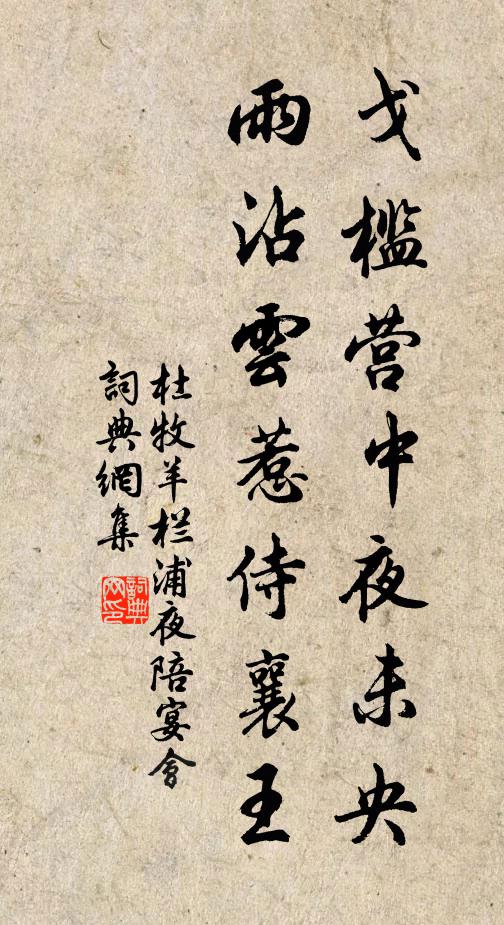 戈檻营中夜未央
雨沾雲惹侍襄王
杜牧羊栏浦夜陪宴會
詞典網集
詞典网印